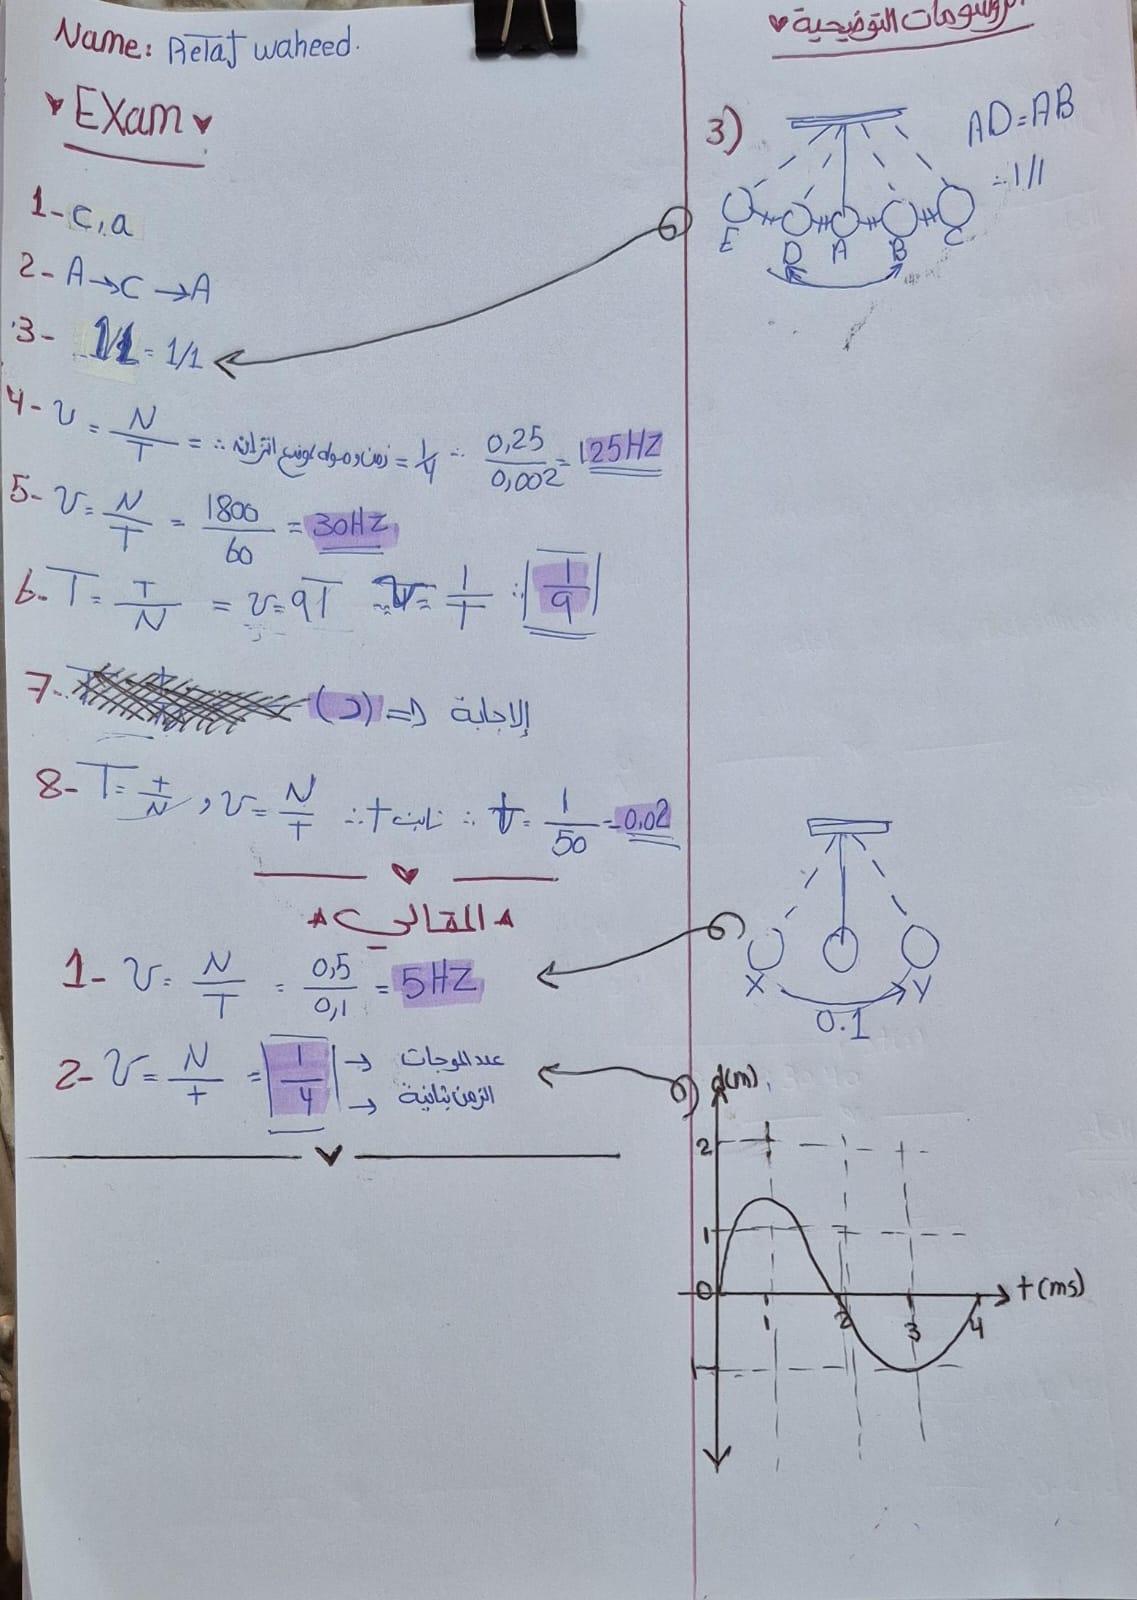 Name: Retaj waheed.
Exam
1- C, a
2- A → C → A
3- 1/1 = 1/1
4- υ = N/T = ∴ زمن وصوله لموضع اتزانه = 1/4 ∴ 0,25/0,002 = 125HZ
5- υ = N/T = 1800/60 = 30HZ
6- T = T/N = υ = 9T υ = 1/T ∴ 1/9
7- الإجابة ⇐ (د)
8- T = t/N , υ = N/t ∴ t ثابت ∴ t = 1/50 = 0,02
المقالي
1- υ = N/T = 0,5/0,1 = 5HZ
2- υ = N/t = 1/4 → عدد الموجات
→ الزمن بثانية
الرسومات التوضيحية
3)
AD=AB
∴ 1/1
E D A B C
X Y
0.1
d(m)
2
1
0
1 2 3 4
t(ms)